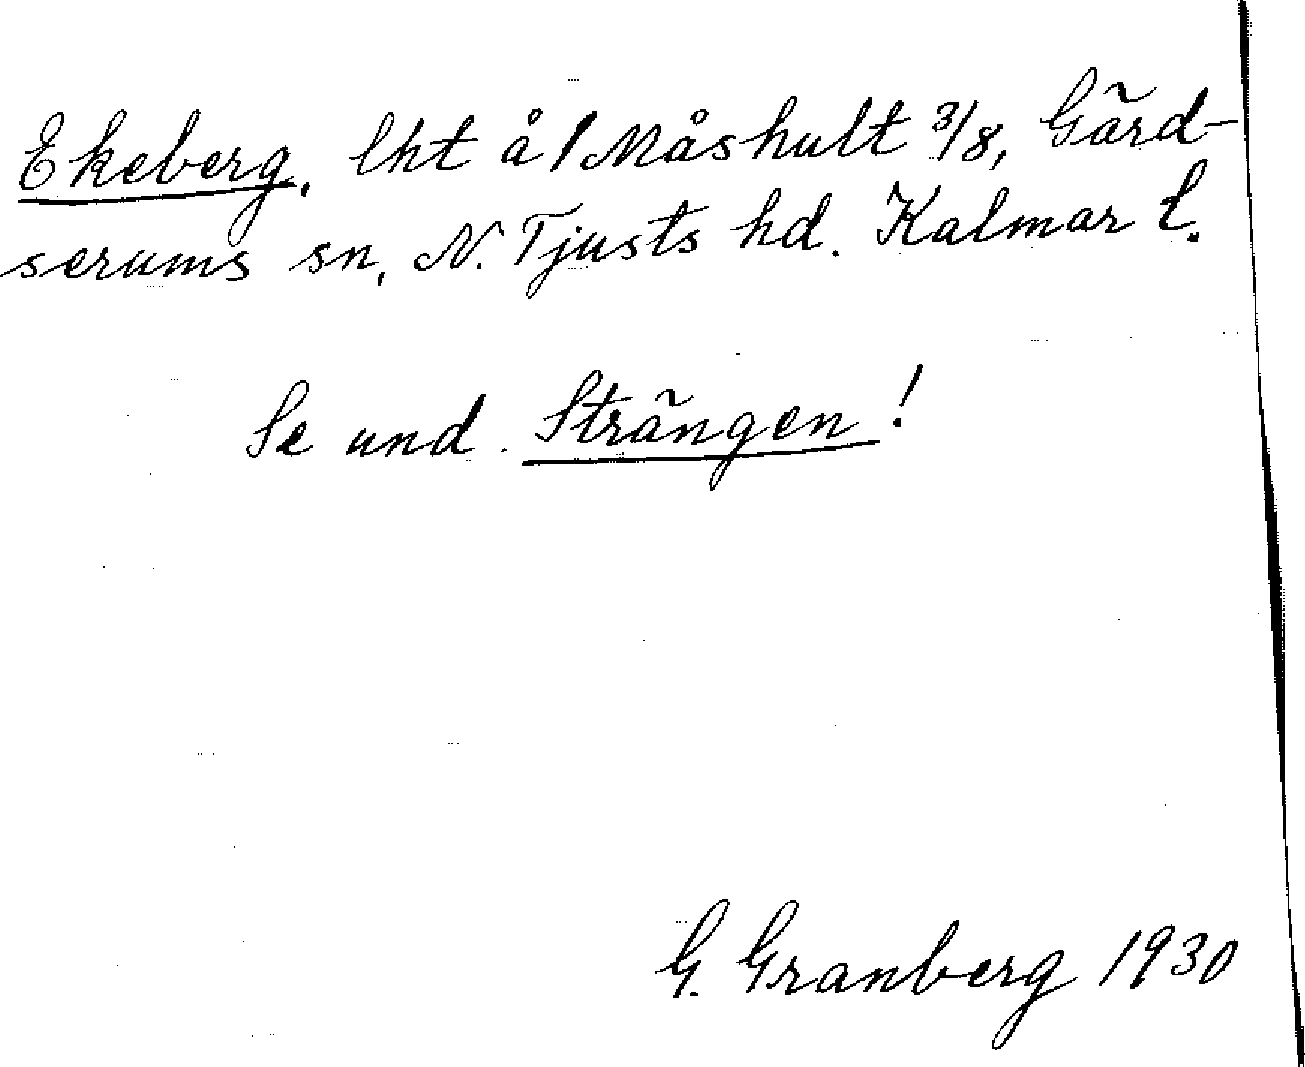 Ekeberg, lht å 1 Måshult 3/8, Gärd-
serums sn, N. Tjusts hd. Kalmar l.
Se und. Strängen!
G. Granberg 1930